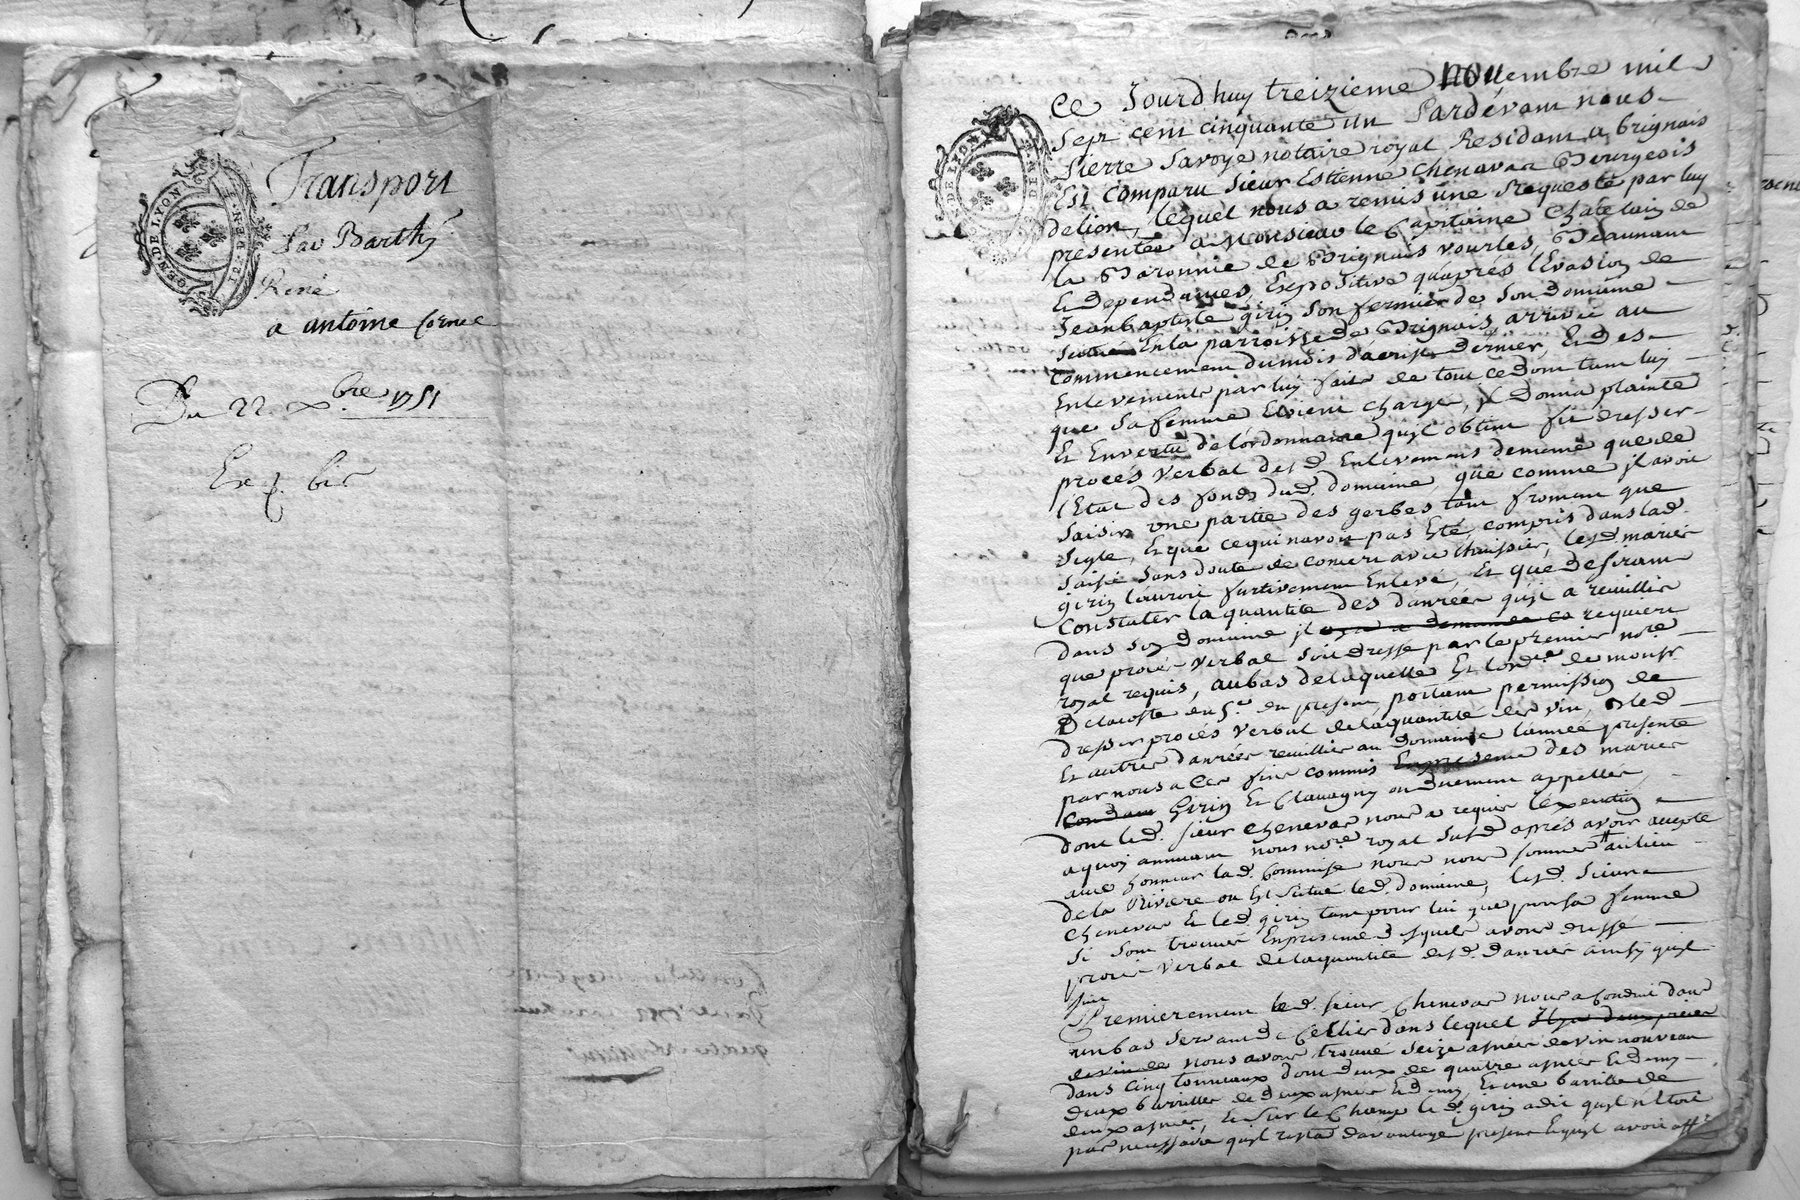 Transport
Par Barthy
René
a antoine Cornec
Du 22 xbre 1751
Exp. bis
GEN. DE LYON
GEN. DE LYON
Ce Jourdhuy treizieme novembre mil
Sept cent cinquante un Pardévant nous
Pierre Savoye notaire royal Residant a brignais
Est Comparu Sieur Estienne Chenavar Bourgeois
delion, lequel nous a remis une Requeste par luy
presentée a Monsieur le Capitaine Chatelain de
la Baronnie de Brignais vourles, Beaunant
Et dependances, Expositive quaprés l'Evasion de
Jeanbaptiste girin Son fermier de Son domaine
Scitué En la parroisse de Brignais, arrivée au
Commencement du mois d'avril dernier, Et des
Enlevements par luy faits de tout ce dont tant luy
que Sa femme Etoient Chargé, il Donna plainte
Et En vertu de l'ordonnance quil obtint fit dresser
procés Verbal desd. Enlevemens de meme que de
l'Etat des fonds dud. domaine, que comme il avoit
Saisir une partie des gerbes tant froment que
Seigle, Et que ce qui n'avoit pas Eté compris dans lad.
Saisie Sans doute de concert avec l'huissier, lesd. mariés
girin l'auroit furtivement Enlevé, Et que desirant
Constater la quantité des danrées quil a recuillir
dans Son Domaine il a requieru
que procés Verbal Soit dressé par le premier nore
royal requis, au bas de laquelle Est l'ordce de monsr
Delacoste du 5e du present, portant permission de
dresser procés Verbal de la quantité de vin, Bled
Et autres danrées recuillies au domaine l'année presente
par nous a Ces fins commis des mariés
Girin Et Clavagny ou duement appellés,
dont led. sieur Chenevar nous a requis l'éxecution
a quoy annuant nous nore royal Susd aprés avoir accepte
avec honneur lad. Commise nous nous sommes au lieu
de la Riviere ou Est Scitué led. domaine, lesd. Sieur
Chenevar Et led girin tant pour lui que pour sa femme
Si Sont trouvés En presence desquels avons dressé
procés Verbal de la quantité desd. danrées ainsi quil
suit
Premierement led. sieur Chenevar nous a conduit dans
un bas Servant de Cellier dans lequel
nous avons trouvé Seize asnées de vin nouveau
dans cinq tonneaux dont deux de quatre asnées Et demy
deux barrilles de deux asnées Et demy Et une barrille de
deux asnées, Et Sur le Champ led. girin a dit quil n'étoit
pas necessaire quil resta davantage present Et quil avoit aff